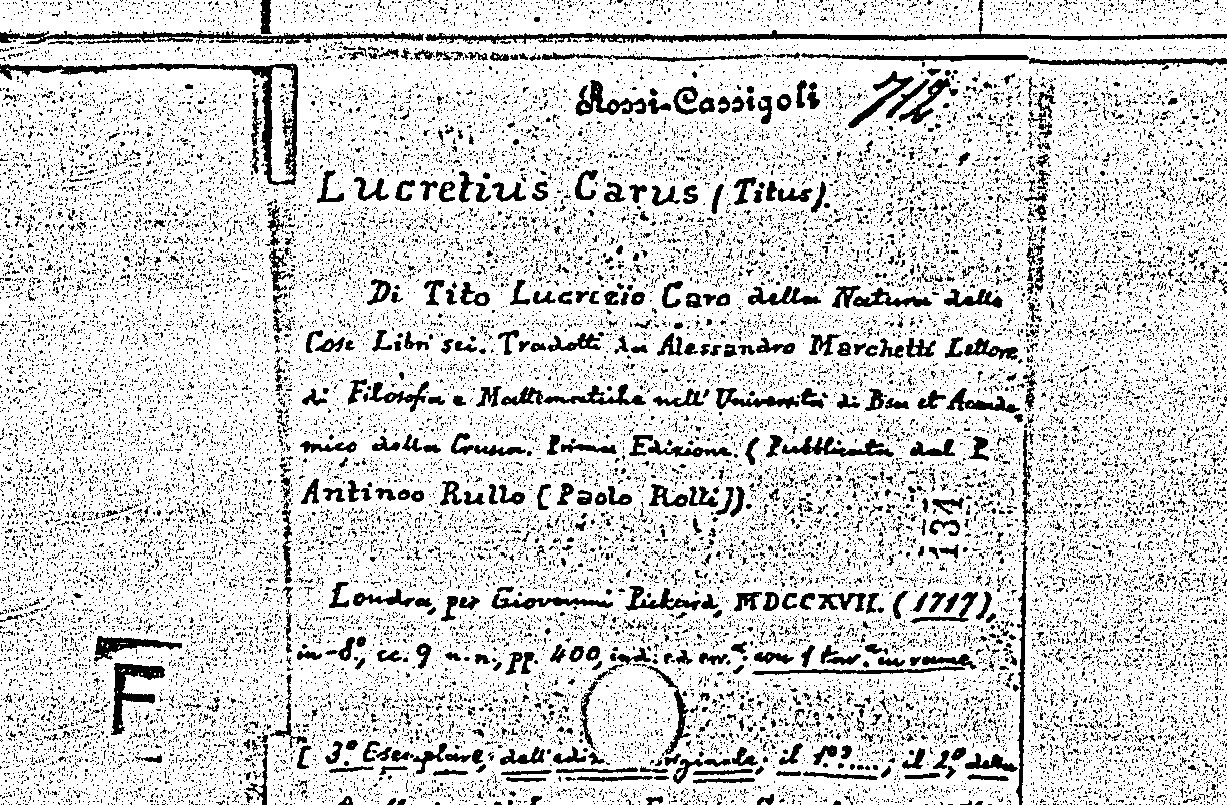 Rossi-Cassigoli 712
Lucretius Carus (Titus).
Di Tito Lucrezio Caro della Natura delle
Cose Libri sei. Tradotti da Alessandro Marchetti Lettore
di Filosofia e Mattematiche nell' Università di Pisa et Accade
mico della Crusca. Prima Edizione. (Pubblicata dal P.
Antinoo Rullo [Paolo Rolli]).
134
Londra, per Giovanni Pickard, MDCCXVII. (1717),
in-8º, cc. 9 n.n., pp. 400, ind. ed err.ª; con 1 tav.ª in rame.
F
[ 3º Esemplare; dell'ediz. originale; il 1º?....; il 2º, della